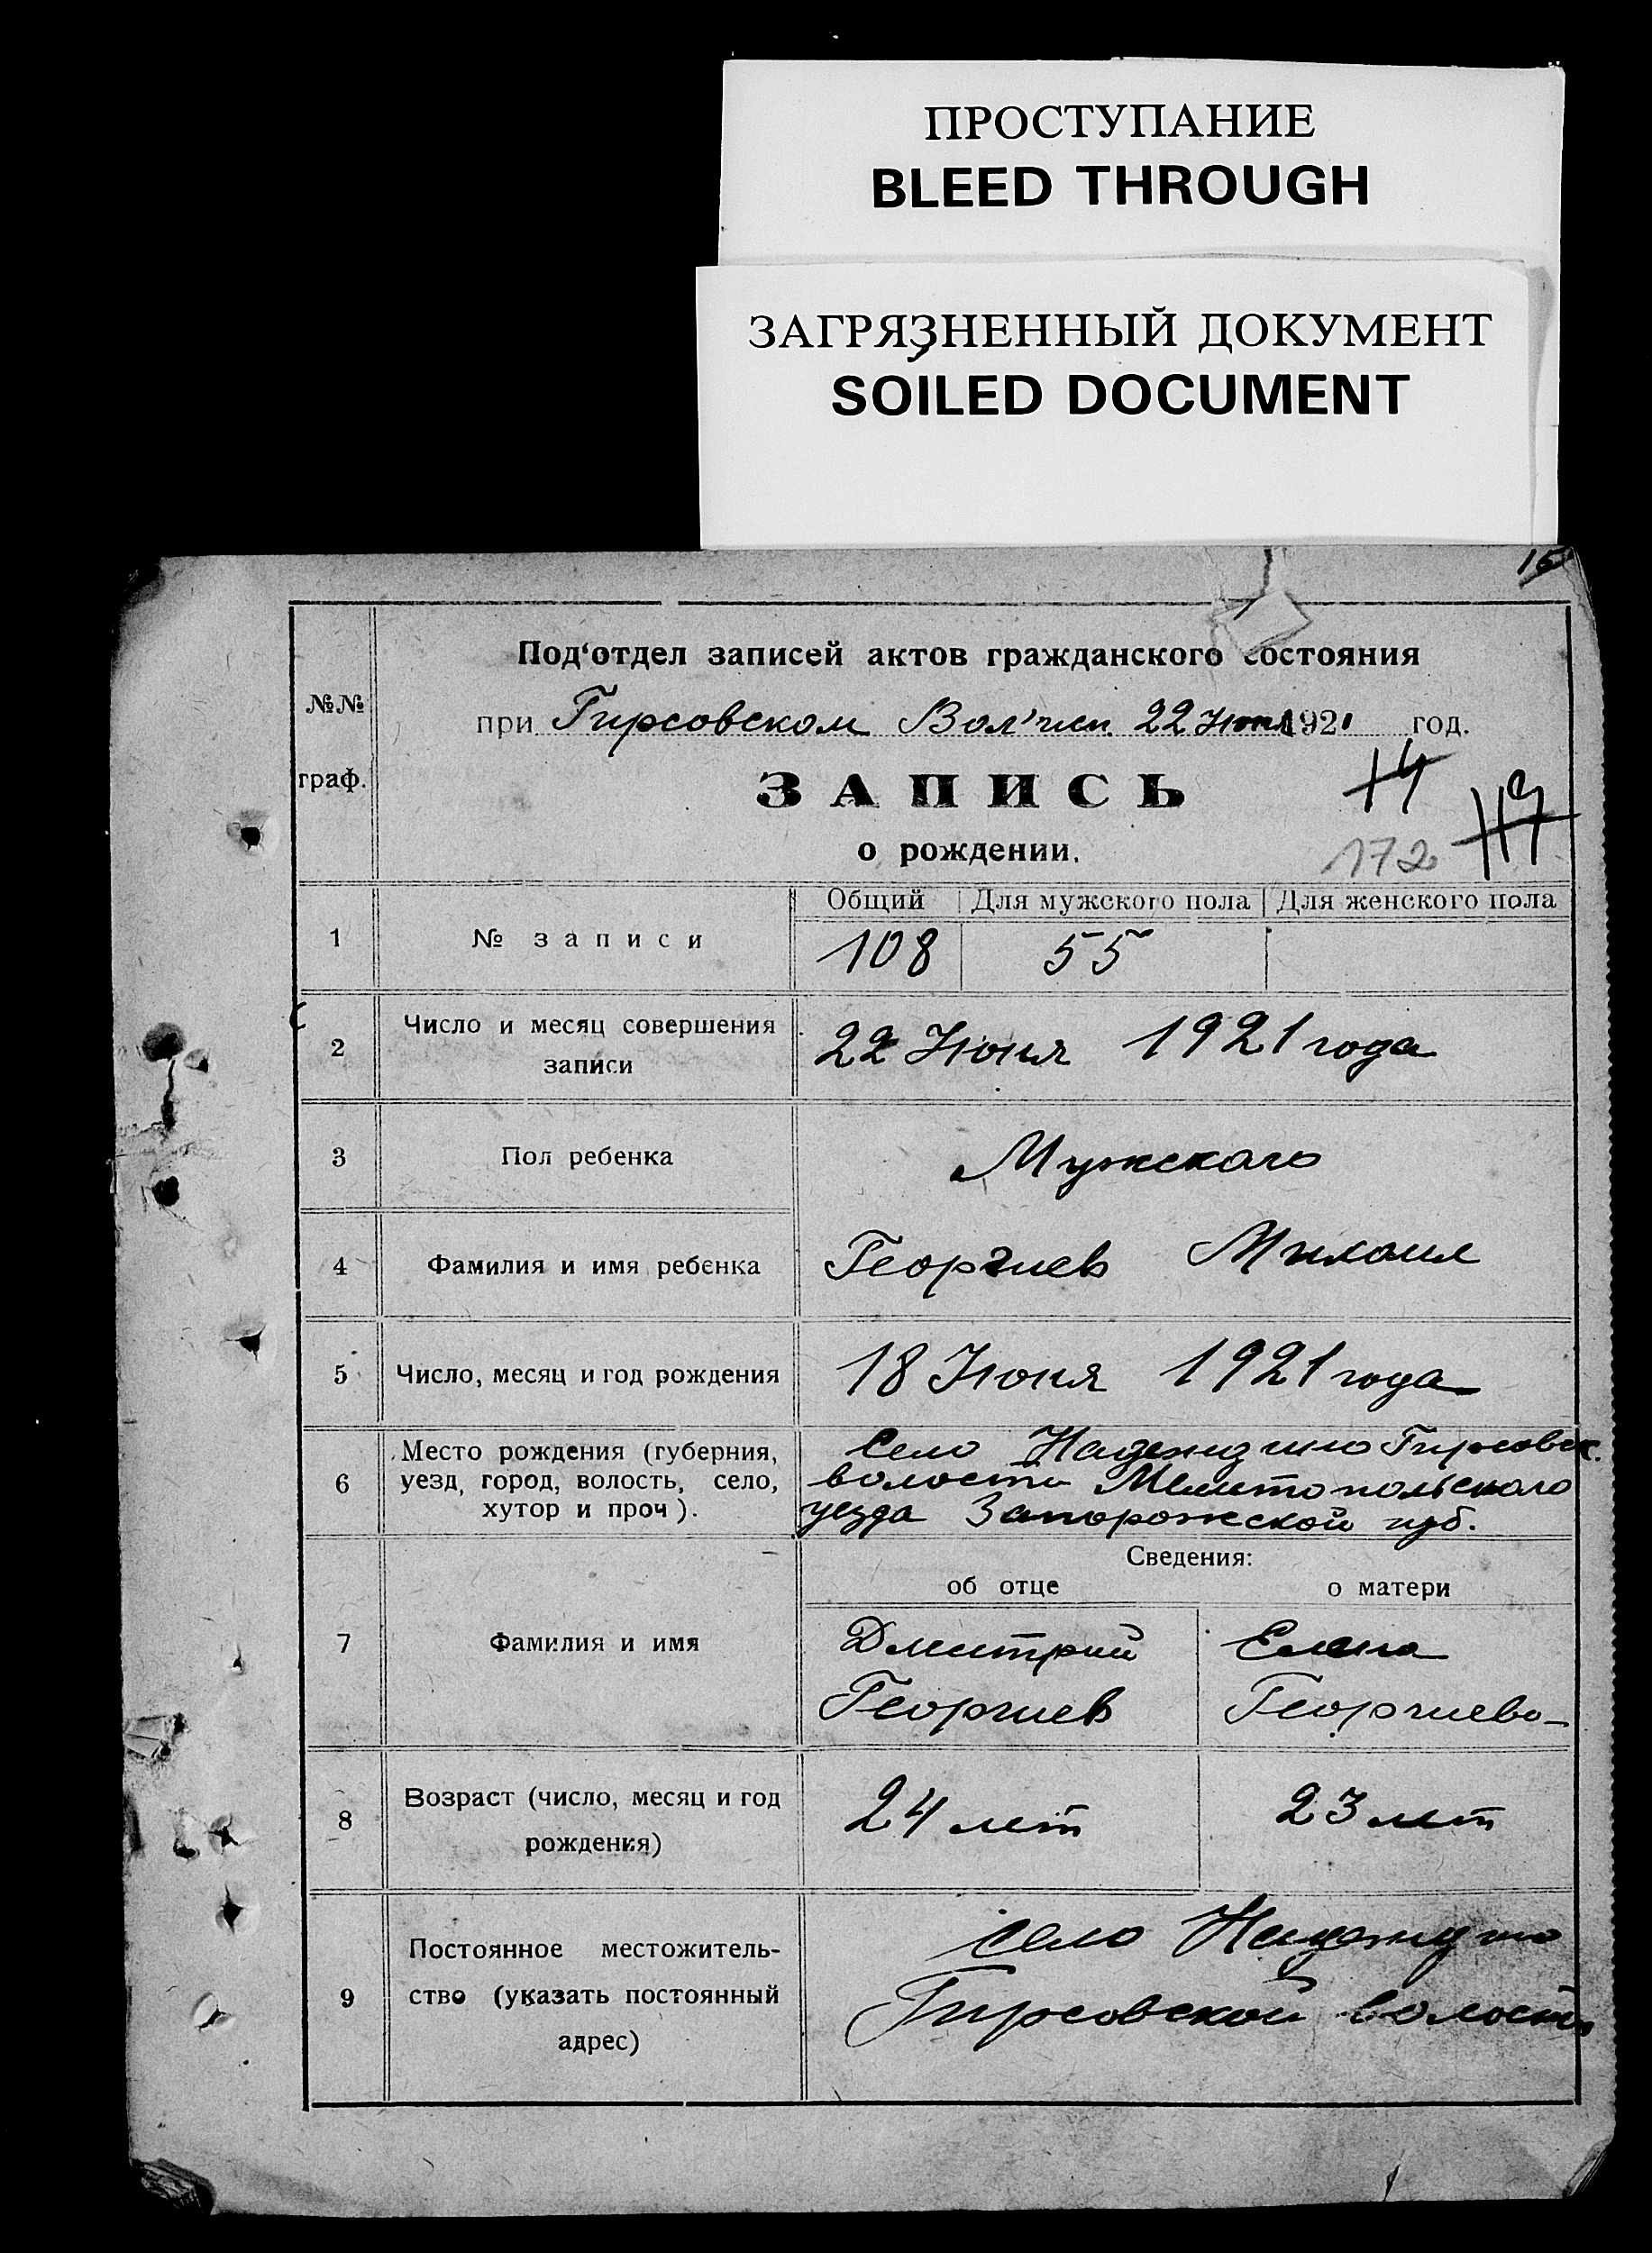 ПРОСТУПАНИЕ
BLEED THROUGH
ЗАГРЯЗНЕННЫЙ ДОКУМЕНТ
SOILED DOCUMENT
15
№№ граф.
Под‘отдел записей актов гражданского состояния
при Гирсовском Вол'исп. 22 Июня 1921 год.
ЗАПИСЬ
14
о рождении.
172 117
Общий Для мужского пола Для женского пола
1 № записи 108 55
2 Число и месяц совершения
записи
22 Июня 1921 года
3 Пол ребенка Мужского
4 Фамилия и имя ребенка Георгиев Михаил
5 Число, месяц и год рождения 18 Июня 1921 года
6 Место рождения (губерния,
уезд, город, волость, село,
хутор и проч).
Село Надеждино Гирсовск.
волости Мелитопольского
уезда Запорожской губ.
Сведения:
об отце о матери
7 Фамилия и имя
Дмитрий Елена
Георгиев Георгиева
8 Возраст (число, месяц и год
рождения)
24 лет 23 лет
9 Постоянное местожитель-
ство (указать постоянный
адрес)
село Надеждино
Гирсовской волости